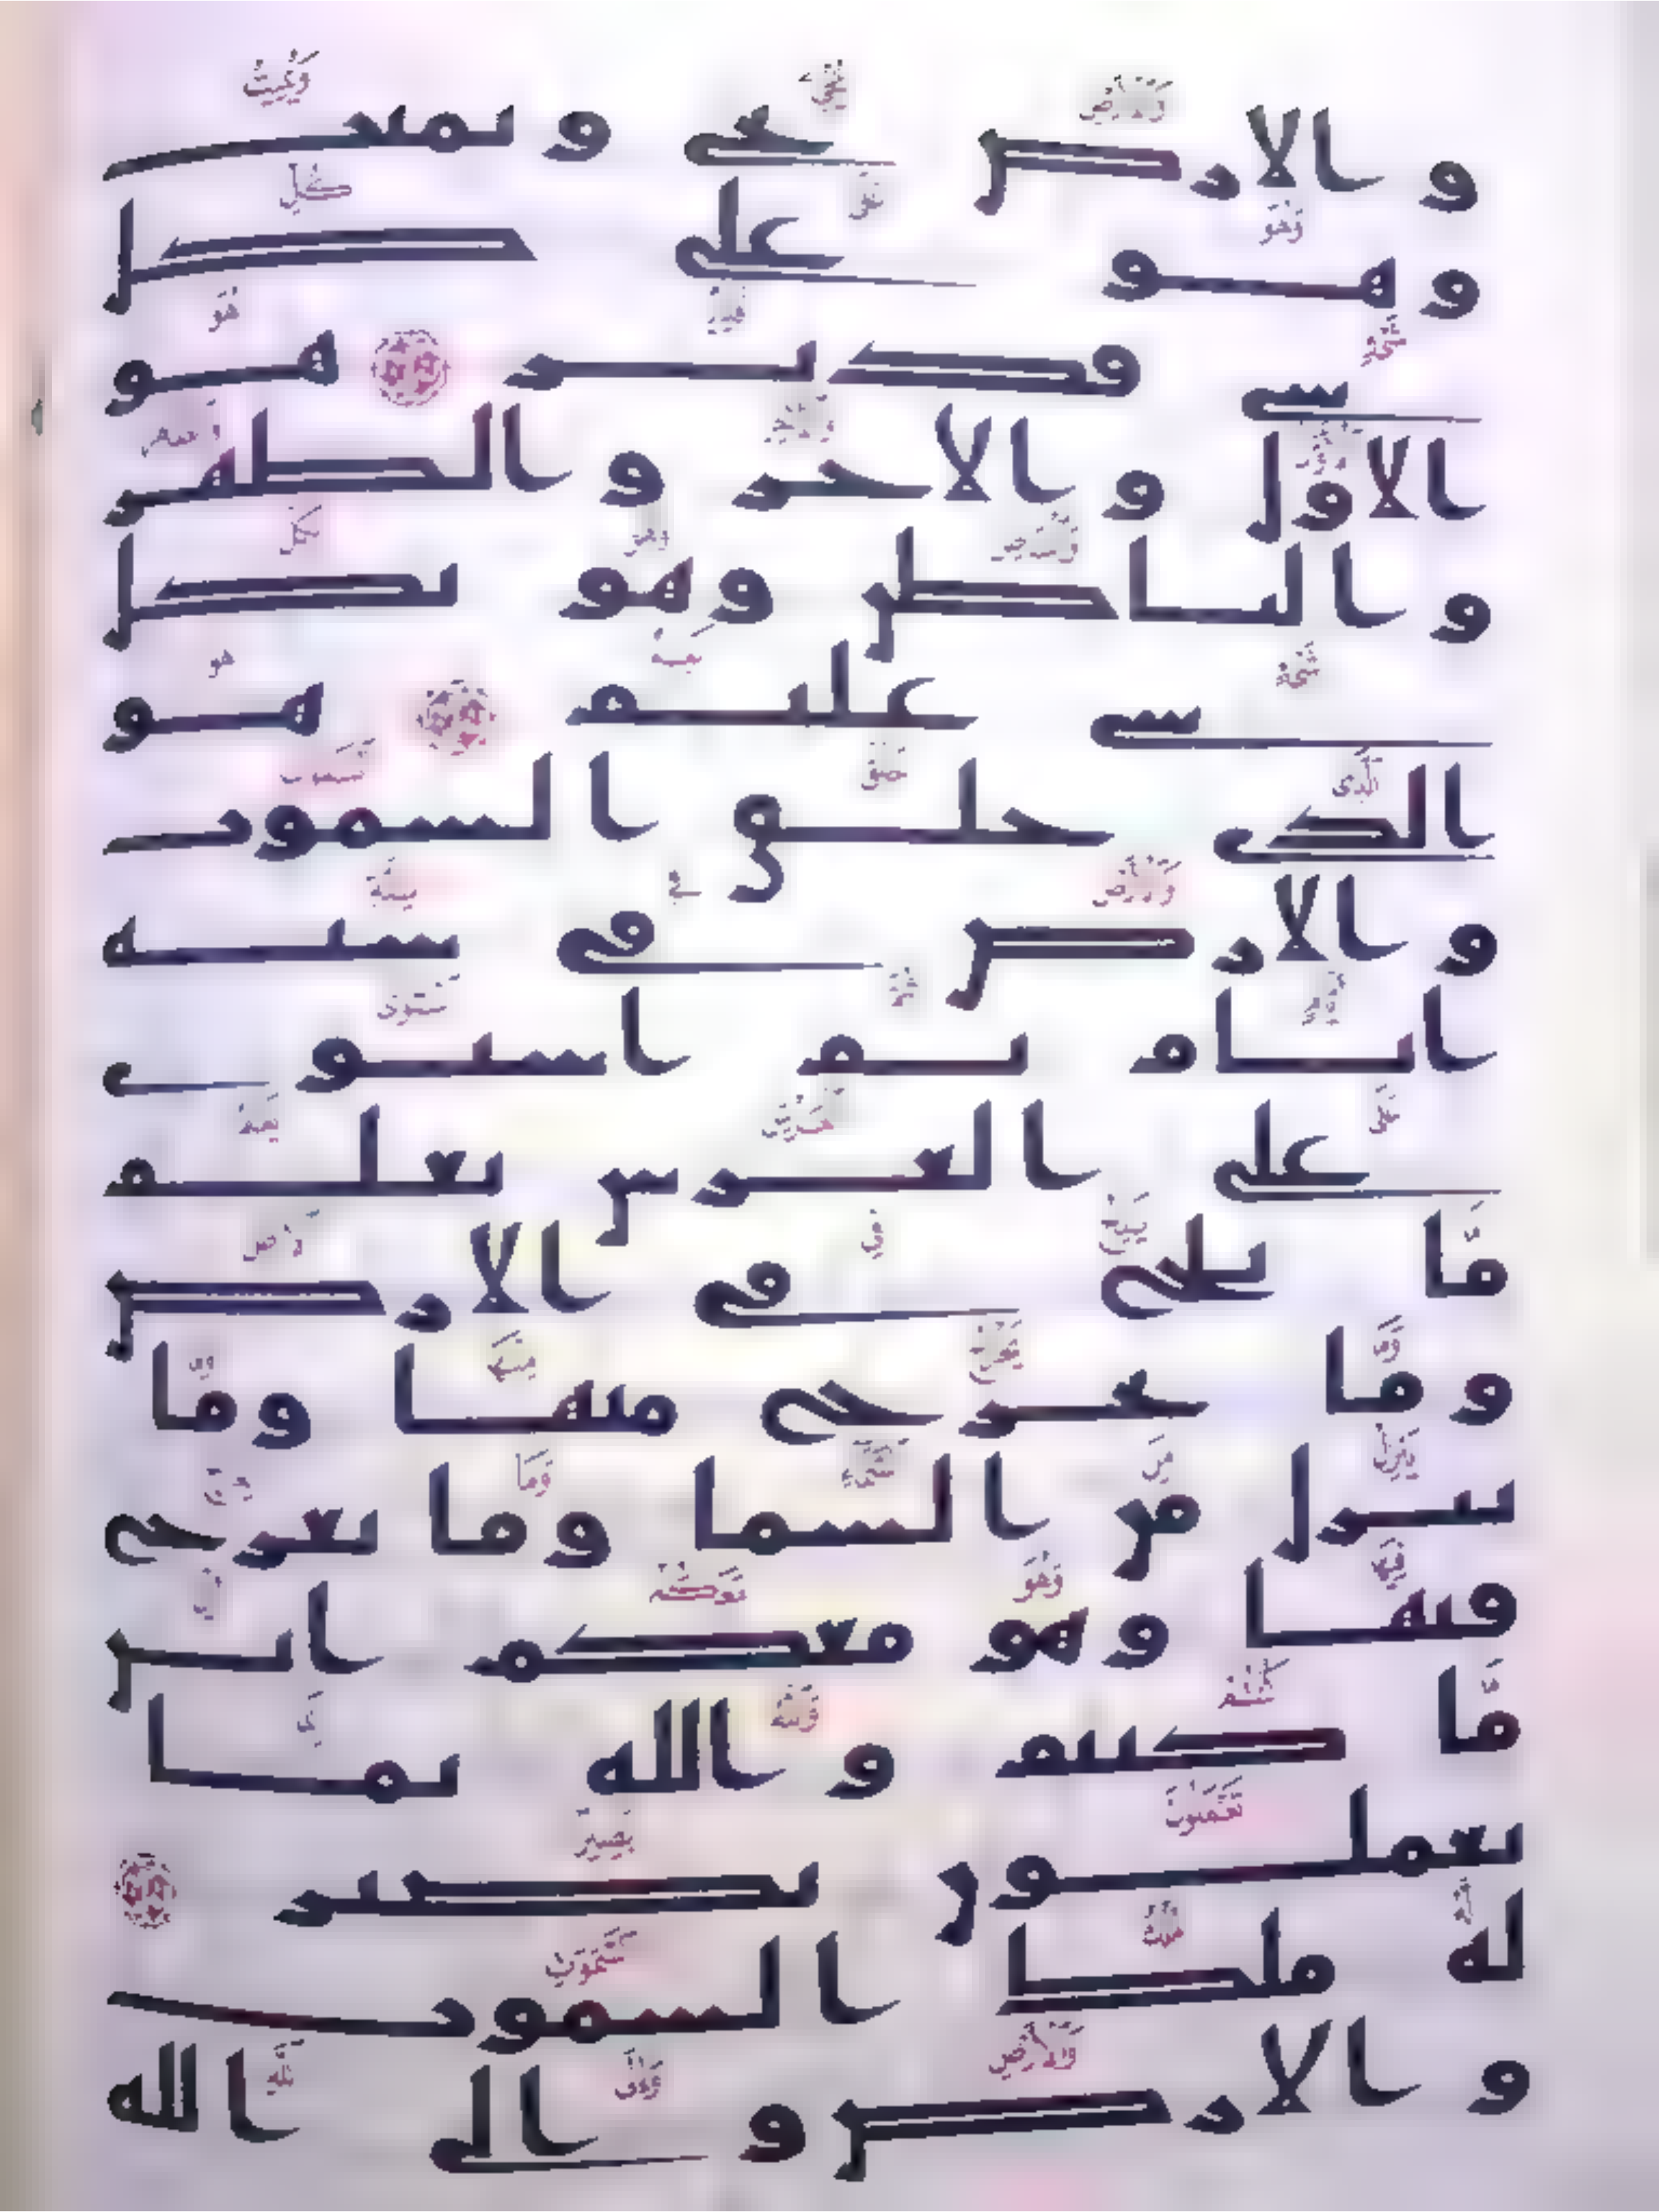 والارض يحي ويميت
وهو على كل
شي قدير هو
الاول والاخر والظهر
والباطن وهو بكل
شي عليم هو
الذي خلق السموت
والارض في ستة
ايام ثم استوى
على العرش يعلم
مّا يلج في الارض
ومّا يخرج منها ومّا
ينزل من السما وما يعرج
فيها وهو معكم اين
مّا كنتم والله بما
تعملون بصير
له ملك السموت
والارض والى الله